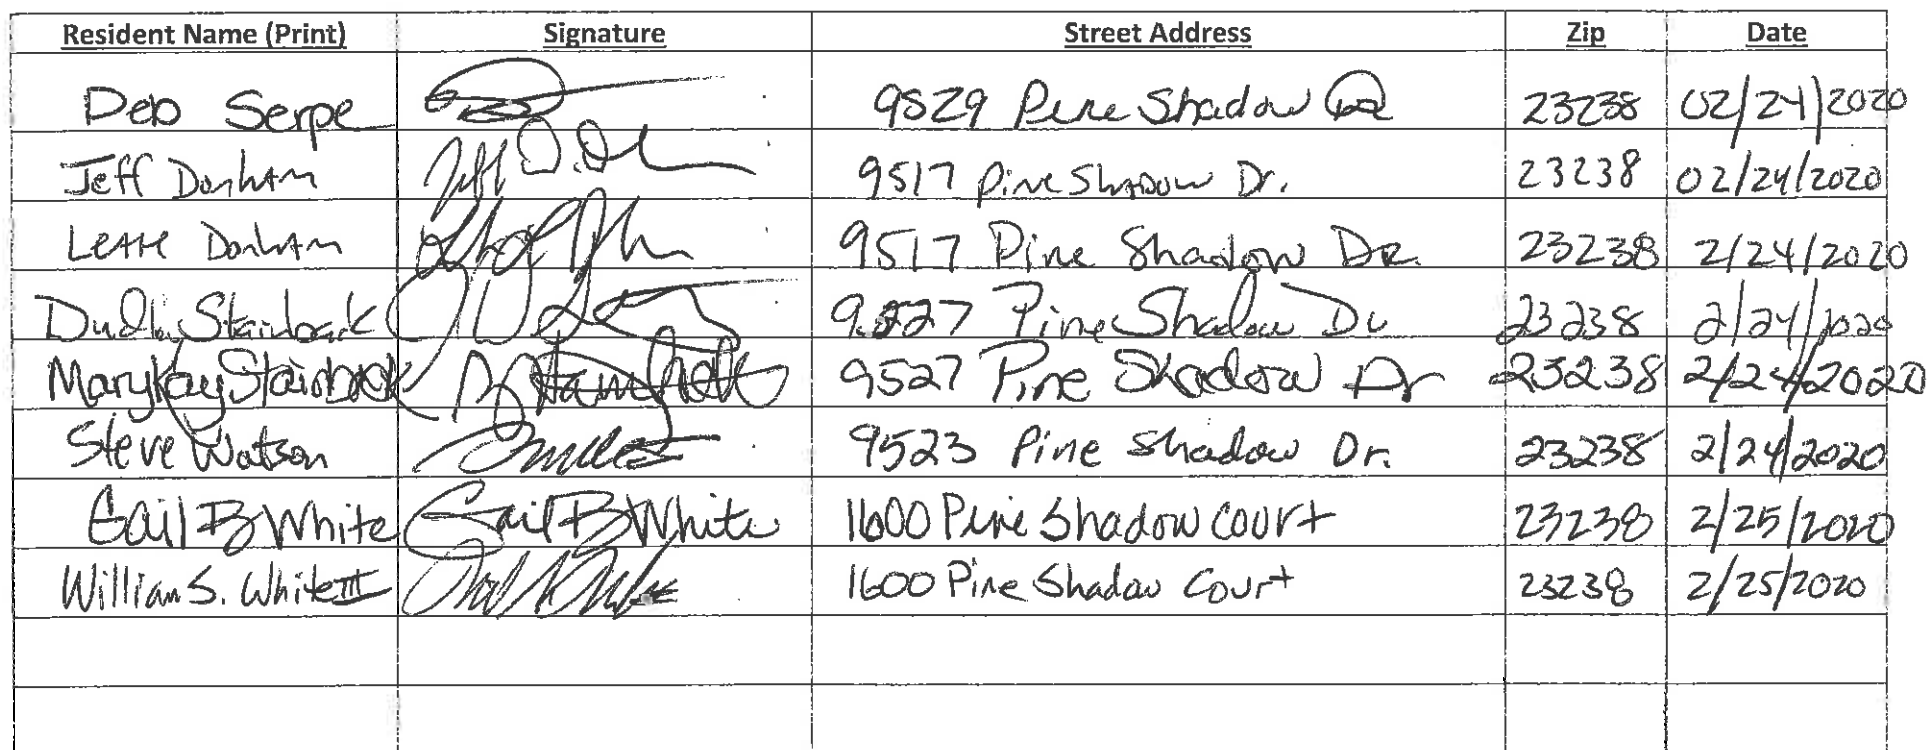 Resident Name (Print) Signature Street Address Zip Date
Deb Serpe 9529 Pine Shadow Dr 23238 02/24/2020
Jeff Donham 9517 Pine Shadow Dr. 23238 02/24/2020
Donham 9517 Pine Shadow DR. 23238 2/24/2020
Dudley Stainback Pine Shadow Dr 23238 2/24/2020
Mary Kay Stainback 9527 Pine Shadow Dr 23238 2/24/2020
Steve Watson 9523 Pine Shadow Dr. 23238 2/24/2020
Gail B White Gail B White 1600 Pine Shadow Court 23238 2/25/2020
William S. White III 1600 Pine Shadow Court 23238 2/25/2020